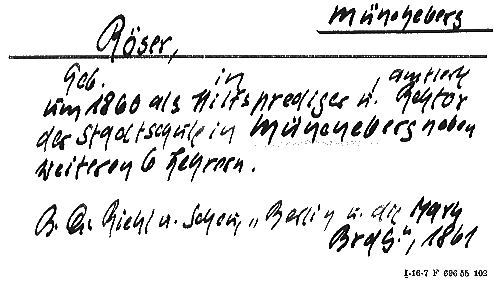 Müncheberg
Röser,
Geb. in , amtiert
um 1860 als Hilfsprediger u. Rektor
der Stadtschule in Müncheberg neben
weiteren 6 Lehrern.
B. Ch. Riehl u. Scheu, „Berlin u. die Mark
Brdg.", 1861
I-16-7 F 696 55 102